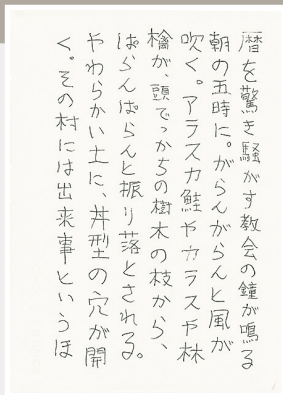 暦を驚き騒がす教会の鐘が鳴る
朝の五時に。がらんがらんと風が
吹く。アラスカ鮭やカラスや林
檎が、頭でっかちの樹木の枝から、
ぱらんぱらんと振り落とされる。
やわらかい土に、丼型の穴が開
く。その村には出来事というほ